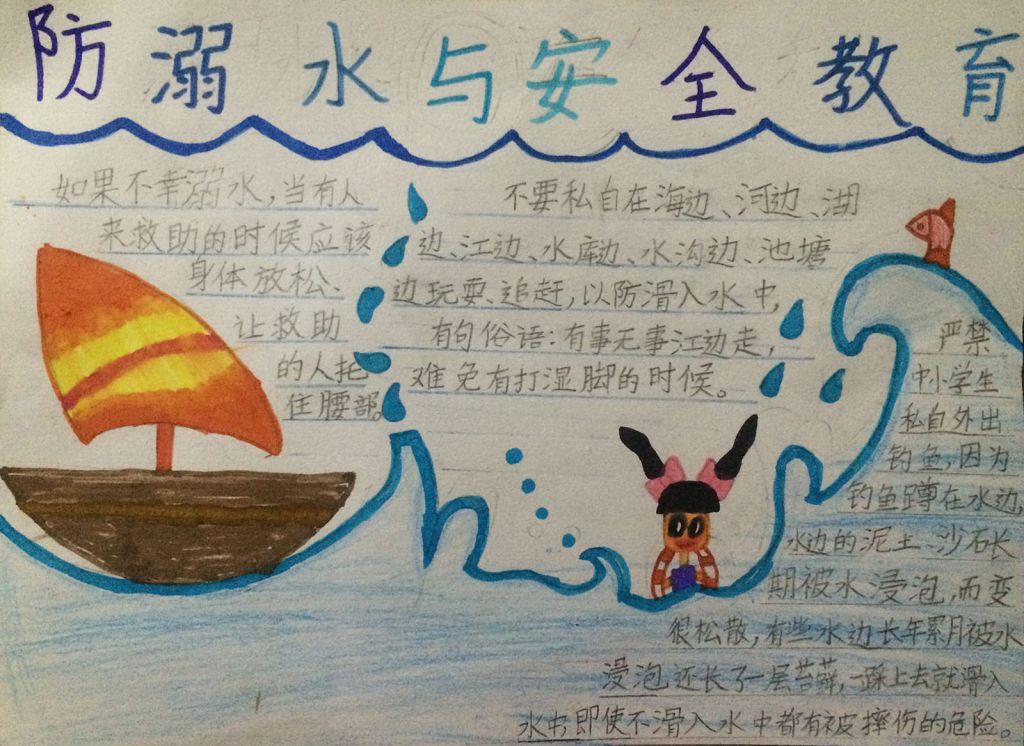 防溺水与安全教育
如果不幸溺水，当有人
来救助的时候应该
身体放松、
让救助
的人托
住腰部。
不要私自在海边、河边、湖
边、江边、水库边、水沟边、池塘
边玩耍、追赶，以防滑入水中，
有句俗语：有事无事江边走，
难免有打湿脚的时候。
严禁
中小学生
私自外出
钓鱼，因为
钓鱼蹲在水边，
水边的泥土、沙石长
期被水浸泡，而变
很松散，有些水边长年累月被水
浸泡还长了一层苔藓，一踩上去就滑入
水中，即使不滑入水中都有被摔伤的危险。